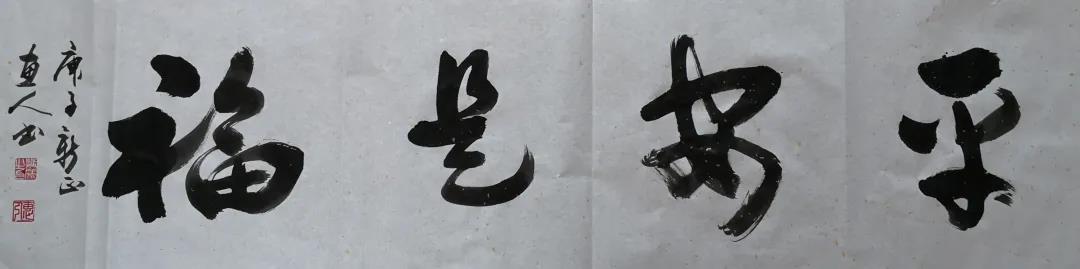 平安是福
庚子新正
惠人书